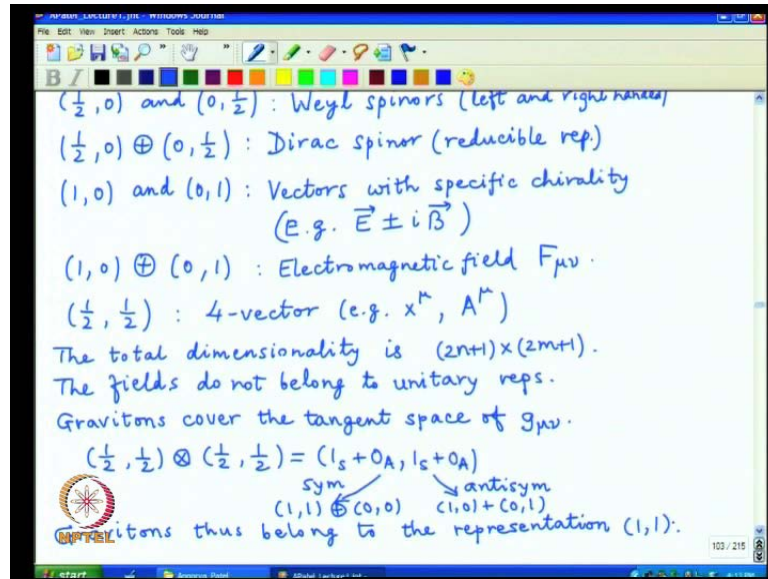 APatel_Lecture1.jnt - Windows Journal
File Edit View Insert Actions Tools Help
B I
(½, 0) and (0, ½) : Weyl spinors (left and right handed)
(½, 0) ⊕ (0, ½) : Dirac spinor (reducible rep.)
(1, 0) and (0, 1) : Vectors with specific chirality
(e.g. E⃗ ± i B⃗)
(1, 0) ⊕ (0, 1) : Electromagnetic field Fμν.
(½, ½) : 4-vector (e.g. x^μ, A^μ)
The total dimensionality is (2n+1)×(2m+1).
The fields do not belong to unitary reps.
Gravitons cover the tangent space of gμν.
(½, ½) ⊗ (½, ½) = (1_S + 0_A, 1_S + 0_A)
sym antisym
(1,1) ⊕ (0,0) (1,0) + (0,1)
Gravitons thus belong to the representation (1,1).
NPTEL
103 / 215
start